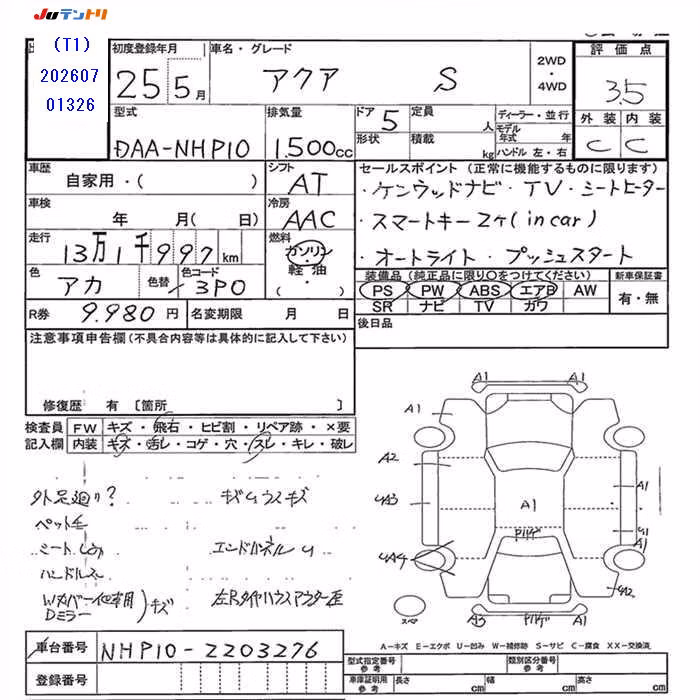 JUテントリ
(T1)
202607
01326
初度登録年月
25 5月
車名・グレード
アクア S
2WD
・
4WD
評価点
3.5
外装 内装
C C
型式
DAA-NHP10
排気量
1.500cc
ドア 5
形状
定員 人
積載 kg
ディーラー・並行
モデル年式 年
ハンドル 左・右
車歴
自家用・( )
シフト
AT
車検
年 月(日 )
冷房
AAC
走行
13万1千997km
燃料
ガソリン
軽・油
( ・ )
色
アカ
色替
色コード
3P0
R券 9.980円
名変期限 月 日
セールスポイント (正常に機能するものに限ります)
・ケンウッドナビ・TV・シートヒーター
・スマートキー2ケ(in car)
・オートライト・プッシュスタート
装備品 (純正品に限り○をつけてください)
PS PW ABS エアB AW
SR ナビ TV ガワ
新車保証書
有・無
後日品
注意事項申告欄(不具合内容等は具体的に記入して下さい)
修復歴 有 〔箇所 〕
検査員記入欄
FW キズ・飛石・ヒビ割・リペア跡・×要
内装 キズ・汚レ・コゲ・穴・スレ・キレ・破レ
外足廻り?
キズ
ペット毛
エンドパネル U
ハンドルスレ
Dミラー
キズ
左Rタイヤハウスアウター
A1 A1
A1
A2
A1
UA3
A1
U1
A1
UA4
UA2
A3
A1
スペア
A-キズ E-エクボ U-凹み W-補修跡 S-サビ C-腐食 XX-交換済
車台番号 NHP10-2203276
登録番号
型式指定番号
参考
類別区分番号
参考
車庫証明用
参考
長さ cm 幅 cm 高さ cm